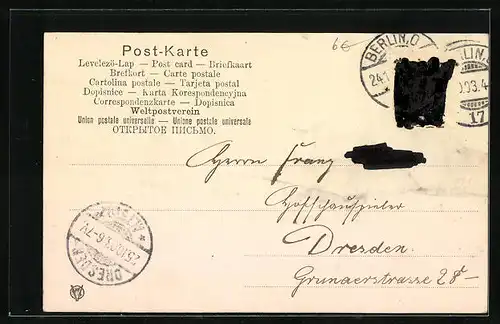 6€
Post-Karte
Levelező-Lap — Post card — Briefkaart
Brefkort — Carte postale
Cartolina postale — Tarjeta postal
Dopisnice — Karta Korespondencyjna
Correspondenzkarte — Dopisnica
Weltpostverein
Union postale universelle — Unione postale universale
ОТКРЫТОЕ ПИСЬМО.
BERLIN, O
24.1
BERLIN,
17
Herrn Franz
Hofschauspieler
Dresden.
Grunaerstrasse 28-
DRESDEN
ALTST.